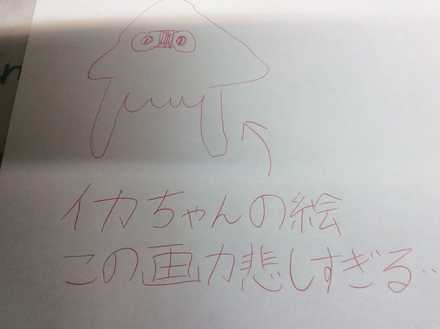 イカちゃんの絵
この画力悲しすぎる‥